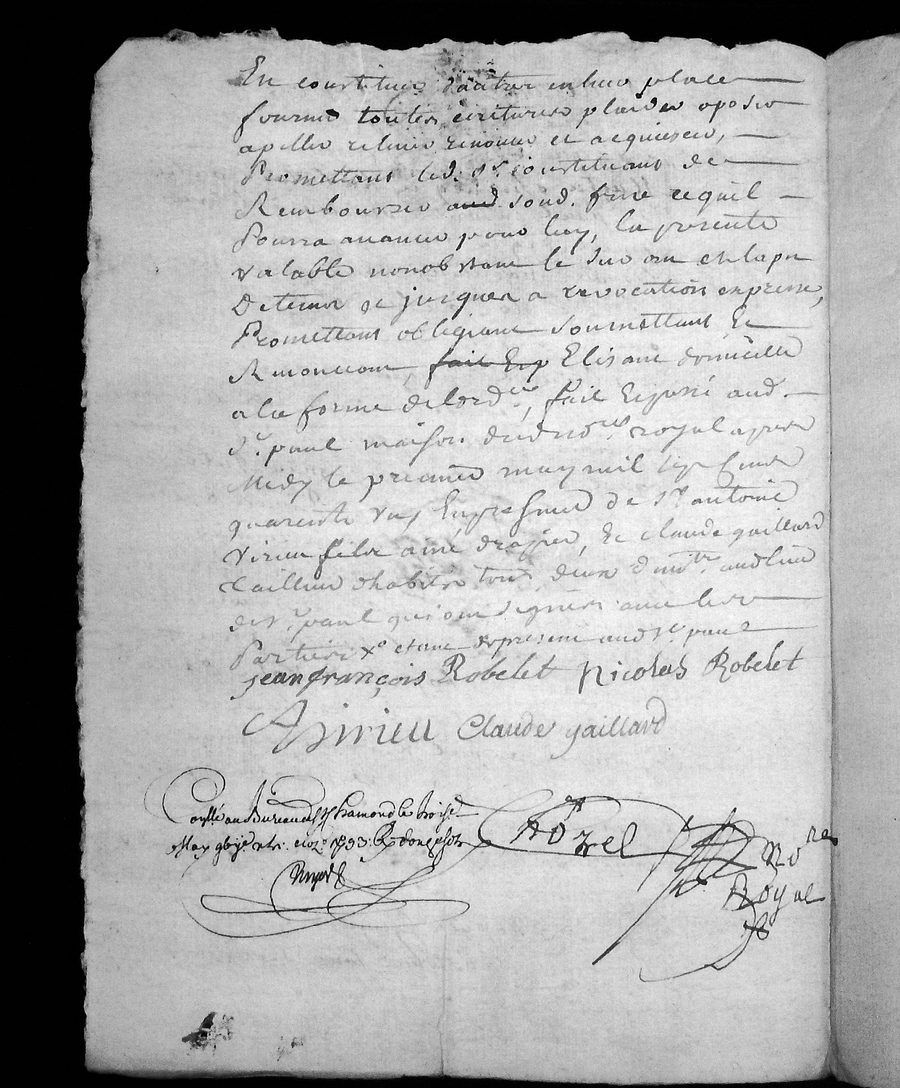 En constituer d'autres en leur place
fournir touttes ecritures plaider oposer
apeller relever renoncer et acquiescer,
Promettant led. Sr. constituant de
Rembourser aud. sond. frere cequil
Pourra avancer pour luy, la presente
valable nonobstant le
De temps et jusques a revocation expresse,
Promettant obligeant soumettant &c
Renoncant, fait Elisant domicille
a la forme delordce, fait Et passé aud.
St. paul maison dud nore royal apres
Midy le premier may mil sept cent
quarente un En presence de Sr antoine
Virieu fils ainé drapier, & claude gaillard
Tailleur d'habits tous deux dud lieu
de St. paul qui ont signés avec les
Parties de present aud St paul
jean françois Robelet Nicolas Robelet
AVirieu Claude gaillard
Conllé au Bureau de St chamond le trois
May g bijs
Nore
Royal